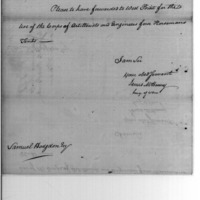 Please to have forwarded to West Point for the
use of the Corps of Artillerists and Engineers four Pansomanie
Tents.
I am Sir
Your Obt Servant
James McHenry
Secy of War
Samuel Hodgdon Esq